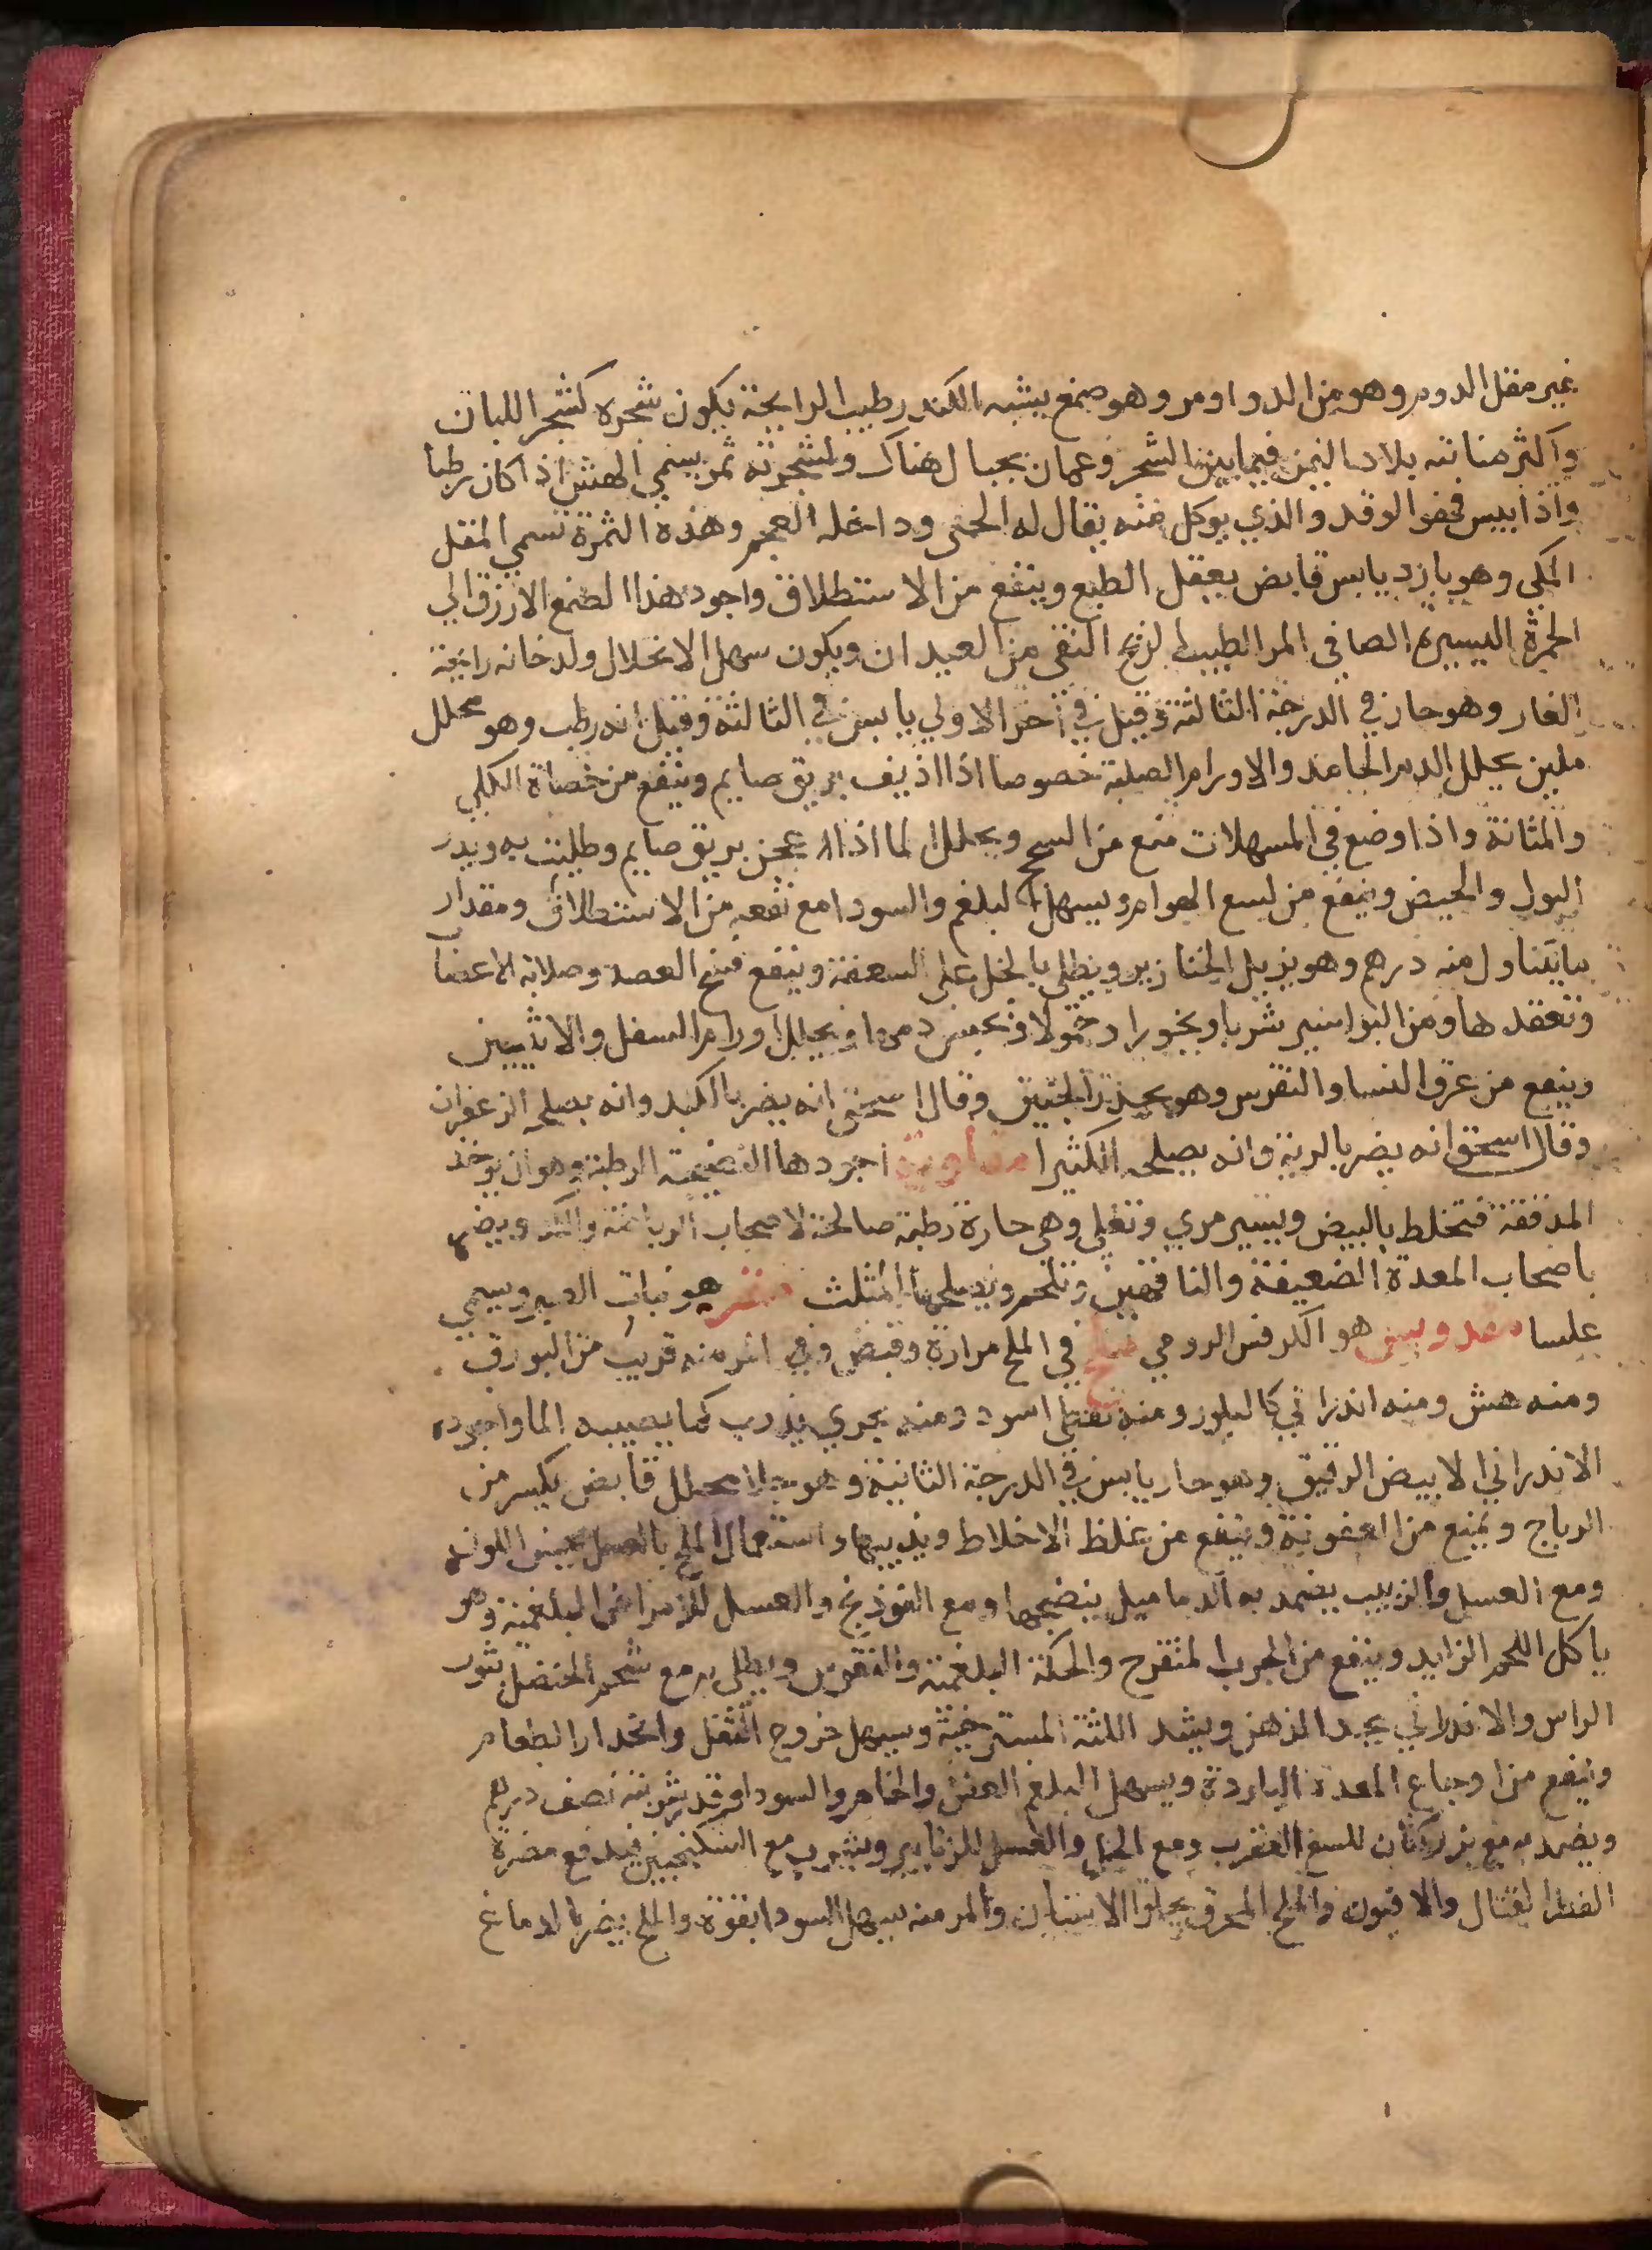 غير مقل الدوم وهو من الدواوم وهو صمغ يشبه الكندر طيب الرايحة يكون شجره كشجر اللبان
واكثر منابته بلاد اليمن فيما بين الشحر وعمان بجبال هناك ولشجرته ثمر يسمي الهش اذا كان رطبا
واذا يبس فهو الوقد والذي يوكل منه يقال له الحتى وداخله العجم وهذه الثمرة تسمي المقل
المكى وهو بارد يابس قابض يعقل الطبع وينفع من الاستطلاق واجود هذا الصمغ الازرق الي
الحمرة اليسيرة الصافي المر الطيب الريح النقى من العيدان ويكون سهل الانحلال ولدخانه رايحة
الغار وهو حار في الدرجة الثالثة وقيل في آخر الاولي يابس في الثالثة وقيل انه رطب وهو محلل
ملين يحلل الدم الجامد والاورام الصلبة خصوصا اذا اذيف بريق صايم وينفع من حصاة الكلي
والمثانة واذا وضع في المسهلات منع من السحج ويحلل لما اذا عجن بريق صايم وطليت به ويدر
البول والحيض وينفع من لسع الهوام ويسهل البلغم والسودا مع نفعه من الاستطلاق ومقدار
مايتناول منه درهم وهو يزيل الخنازير ويطلي بالخل على السعفة وينفع فسخ العصب وصلابة الاعضا
وتعقدها ومن البواسير شربا وبخورا وحمولا ويحبس دمها ويحلل اورام السفل والانثيين
وينفع من عرق النسا والنقرس وهو يحدر الجنين وقال اسحق انه يضر بالكبد وانه يصلحه الزعفران
وقال اسحق انه يضر بالرية وانه يصلحه الكثيرا اجودها النضيجة الرطبة وهو ان يوخذ
المدققة فتخلط بالبيض ويسير مري وتغلي وهي حارة رطبة صالحة لاصحاب الرياضة والكد ويضر
باصحاب المعدة الضعيفة والناقهين وتتخم ويصلحها المثلث هو نبات الصبر ويسمي
علسا مقدونيس هو الكرفس الرومي ملح في الملح مرارة وقبض وفي المر منه قريب من البورق
ومنه هش ومنه اندراني كالبلور ومنه نفطي اسود ومنه بحري يذوب كما يصيبه الما واجوده
الاندراني الابيض الرقيق وهو حار يابس في الدرجة الثانية وهو جلا محلل قابض يكسر من
الرياح ويمنع من العفونة وينفع من غلظ الاخلاط ويذيبها واستعمال الملح بالعسل يحسن اللون
ومع العسل والزبيب يضمد به الدماميل ينضجها ومع الفوذنج والعسل للاورام البلغمية وهو
ياكل اللحم الزايد وينفع من الجرب المتقرح والحكة البلغمية والنقرس ويطلي به مع شحم الحنضل بثور
الراس والاندراني يحد الذهن ويشد اللثة المسترخية ويسهل خروج الثفل وانحدار الطعام
وينفع من اوجاع المعدة الباردة ويسهل البلغم العفن والخام والسودا وقد شربته نصف درهم
ويضمد به مع بزر كتان للسع العقرب ومع الخل والعسل للزنابير ويشرب مع السكنجبين فيدفع مضرة
الفطر القتال والافيون والملح المحرق يجلوا الاسنان والمر منه يسهل السودا بقوة والملح يضر بالدماغ